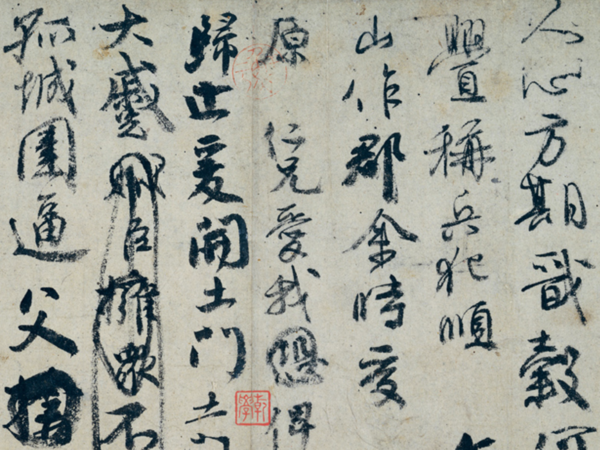 人心方期戩穀何
釁稱兵犯順
山作郡余時受
原 仁兄愛我恐俾
歸止爰開土門土門
大蹙賊臣擁眾不
孤城圍逼父擒